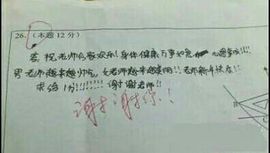 26. (本题 12 分)
答: 祝老师合家欢乐!身体健康 万事如意
男老师越来越帅, 女老师越来越美丽!!老师新年快乐!
求给1分!!!!!! 谢谢老师!!
谢谢你!!